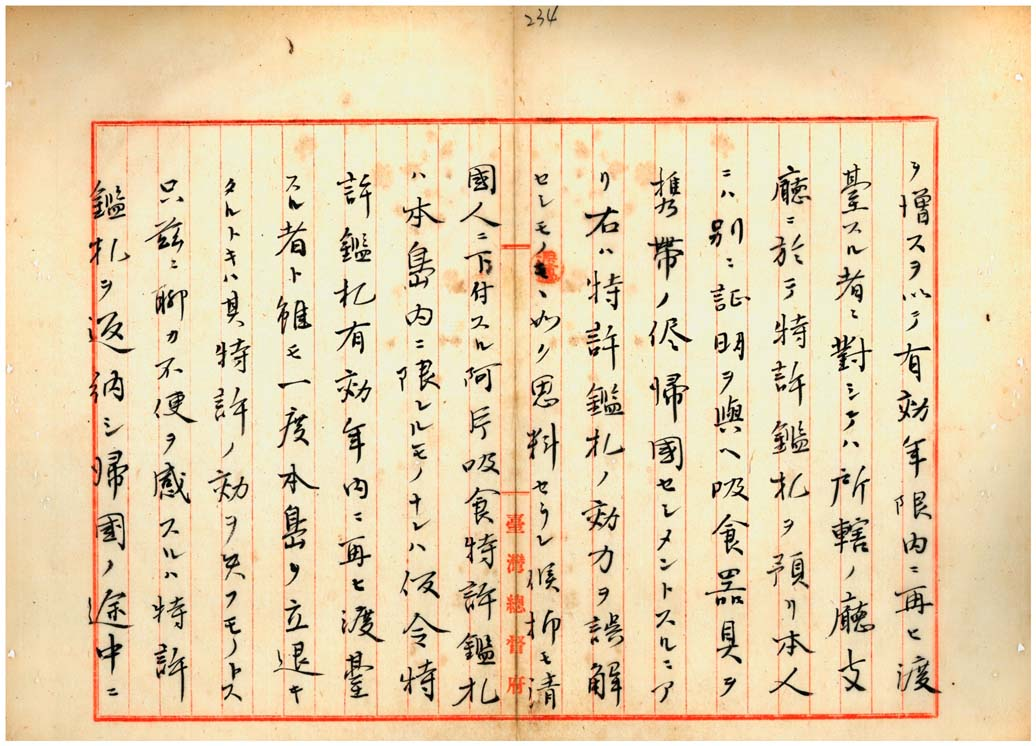 234
ヲ増スヲ以テ有効年限内ニ再ヒ渡
臺スル者ニ對シテハ所轄ノ廳支
廳ニ於テ特許鑑札ヲ預リ本人
ニハ別ニ証明ヲ與ヘ吸食器具ヲ
携帯ノ侭帰國セシメントスルニア
リ右ハ特許鑑札ノ効力ヲ誤解
セシモノヽ如ク思料セラレ候抑モ清
國人ニ下付スル阿片吸食特許鑑札
ハ本島内ニ限レルモノナレハ仮令特
許鑑札有効年内ニ再ヒ渡臺
スル者ト雖モ一度本島ヲ立退キ
タルトキハ其特許ノ効ヲ失フモノトス
只茲ニ聊カ不便ヲ感スルハ特許
鑑札ヲ返納シ帰國ノ途中ニ
臺灣總督府